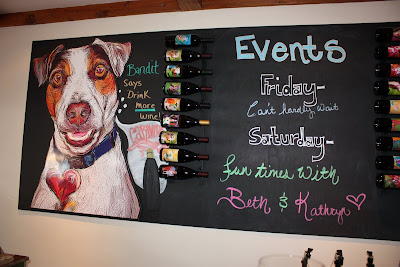 Bandit
Says
Drink
more
wine!
Events
Friday-
Can't hardly wait
Saturday-
fun times with
Beth & Kathryn